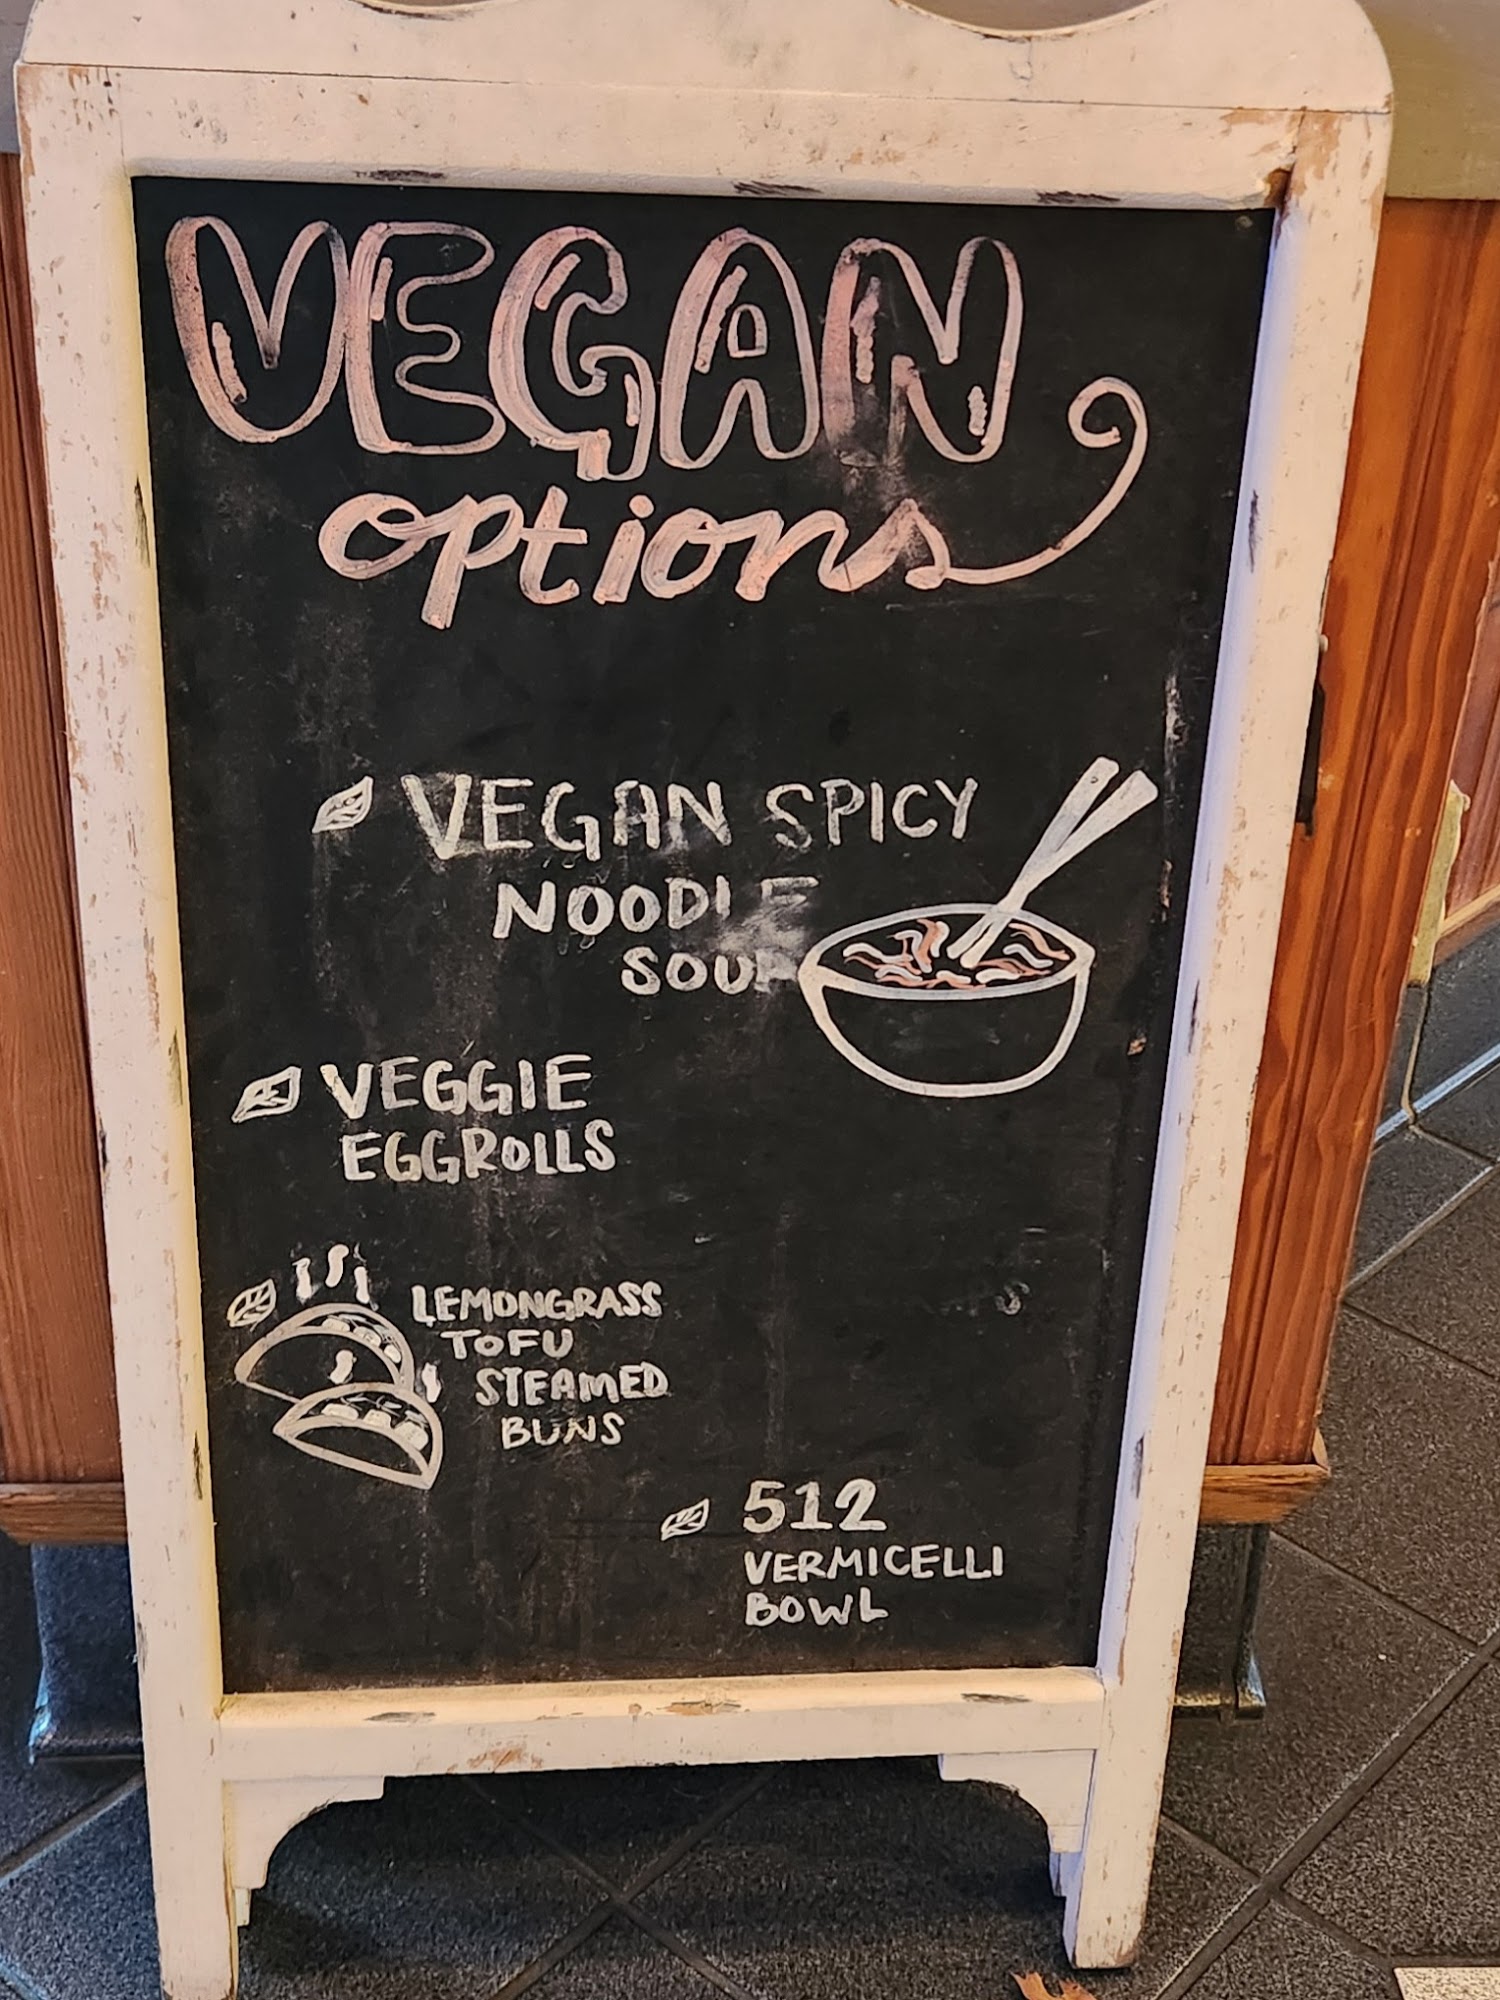 VEGAN
options
VEGAN SPICY
NOODLE
SOUP
VEGGIE
EGGROLLS
LEMONGRASS
TOFU
STEAMED
BUNS
512
VERMICELLI
BOWL